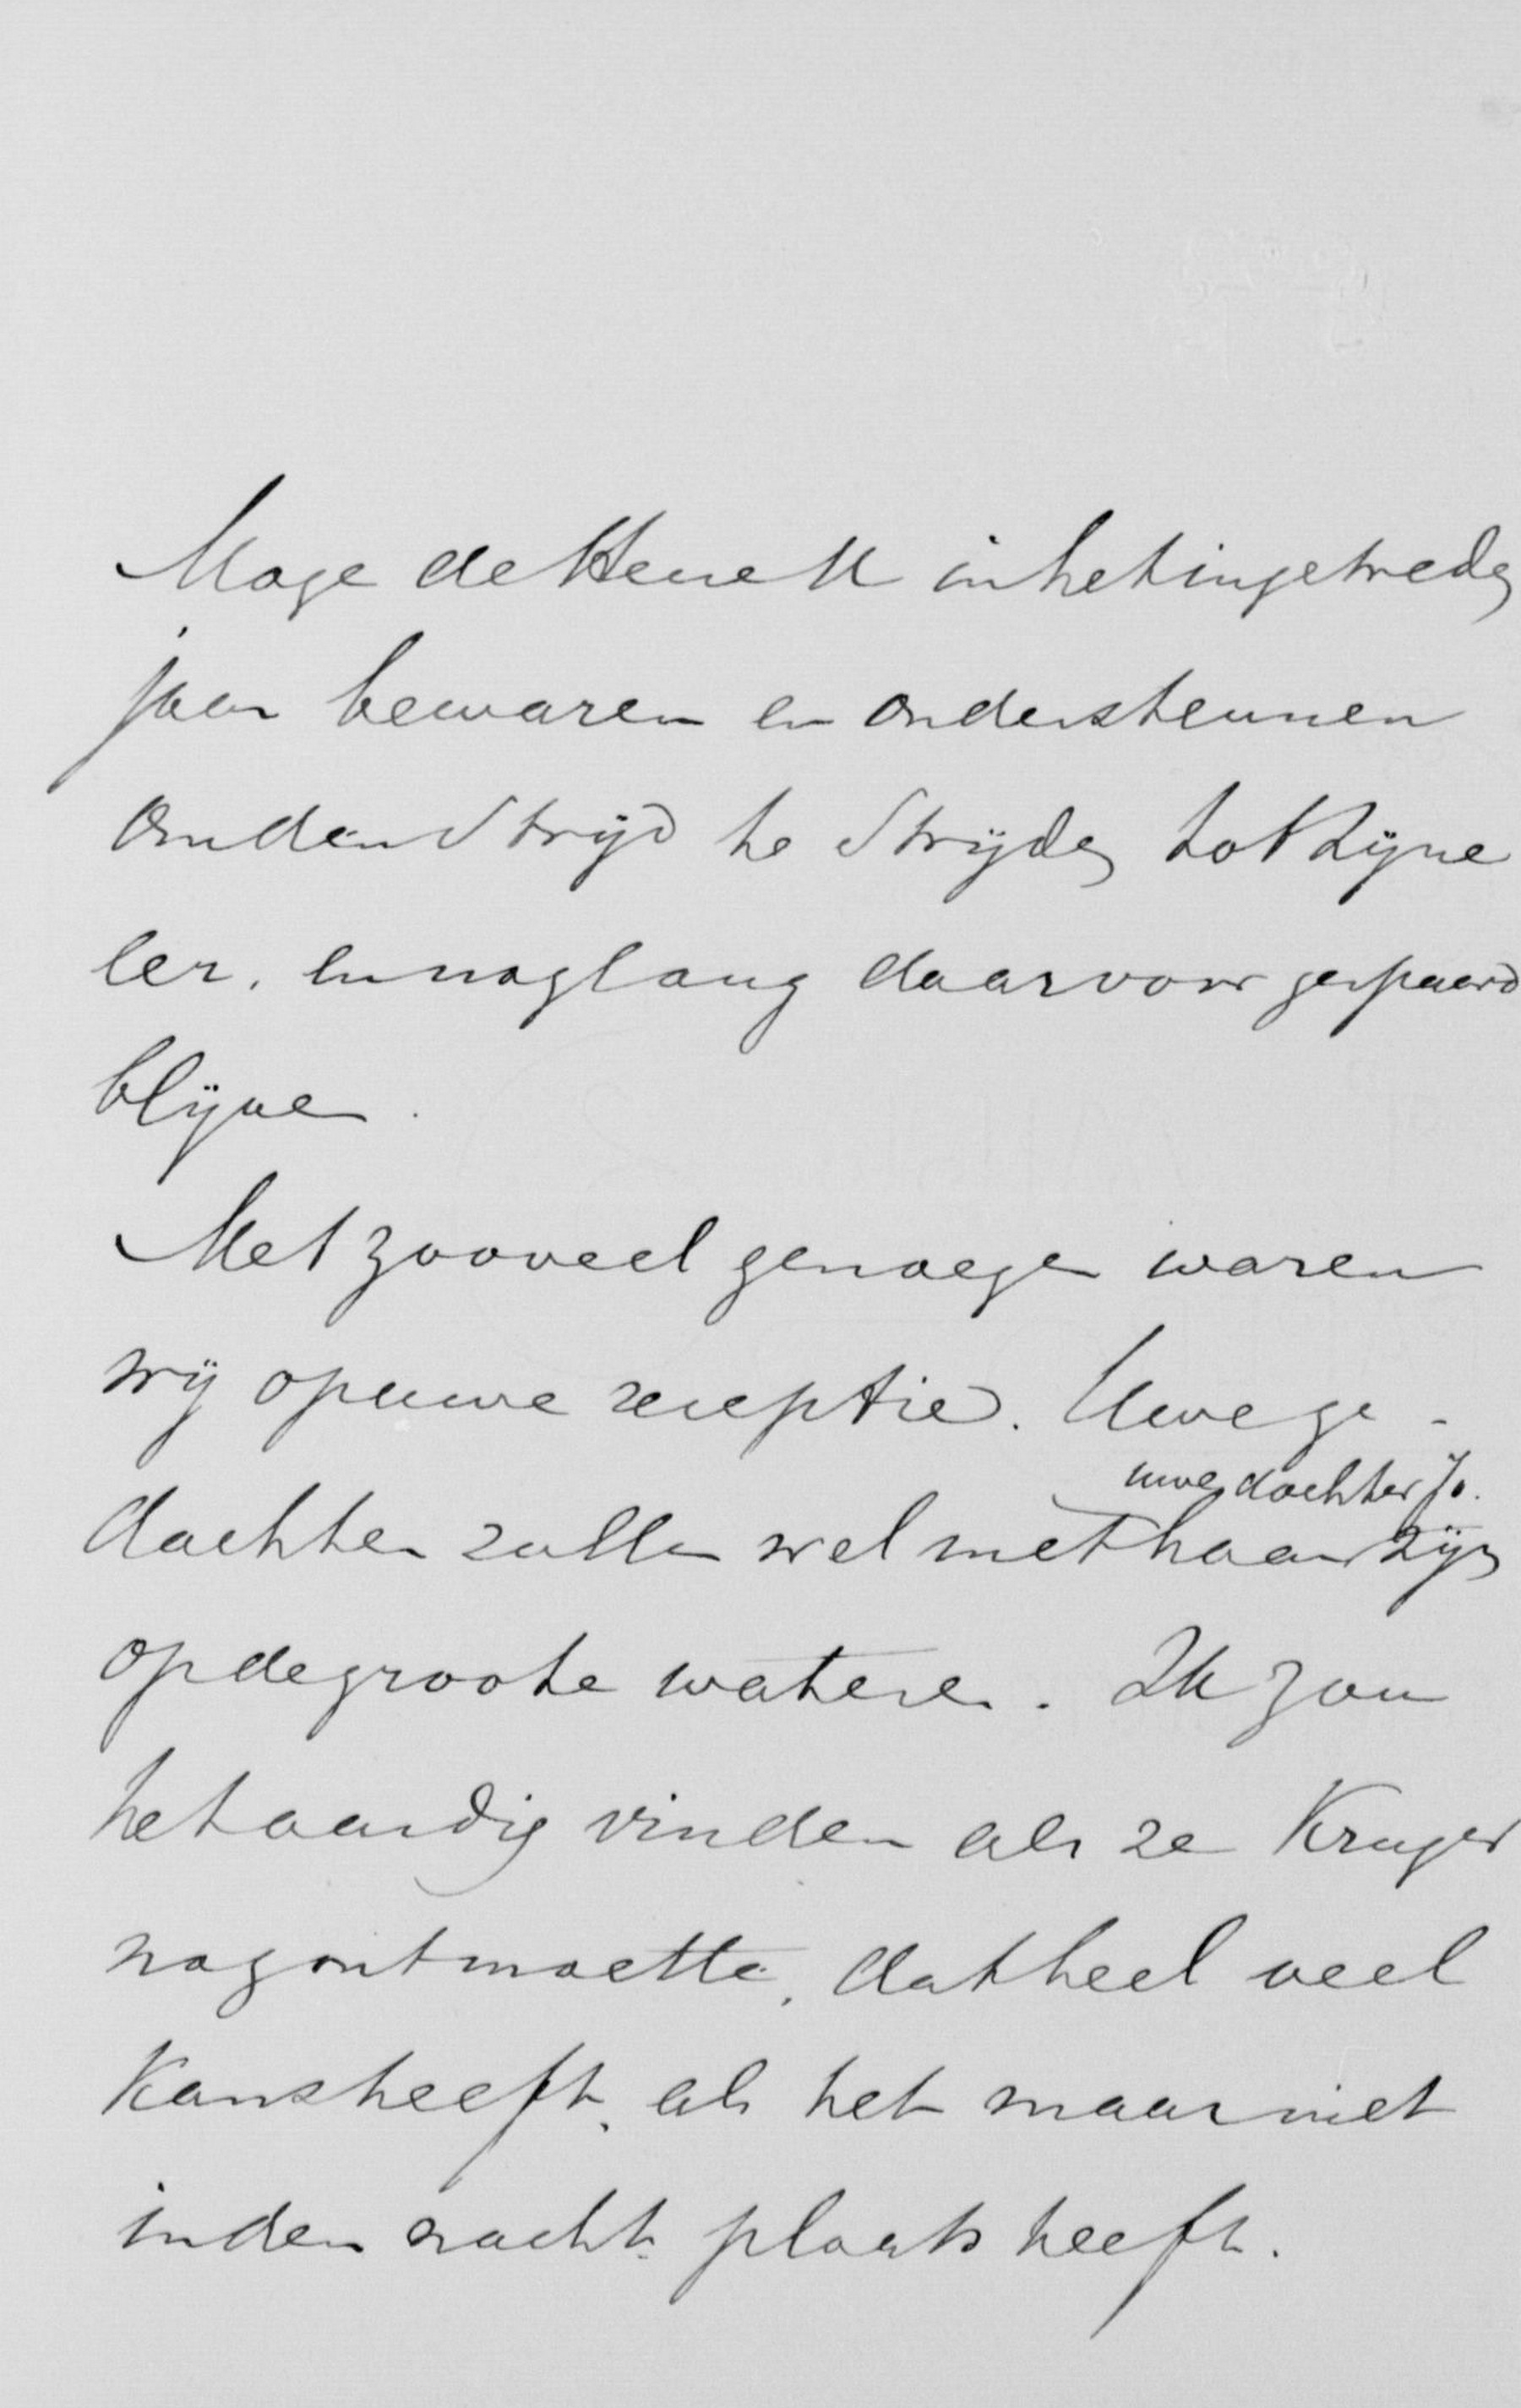 Moge de Heere U in het ingetreden
jaar bewaren en ondersteunen
om den Strijd te Strijden tot Zijne
eer. en nog lang daarvoor gespaard
blijve.
Met zooveel genoegen waren
wij op uwe receptie. Uwe ge-
uwe dochter Jo.
dachten zullen wel met haar zijn
op de groote wateren. Ik zou
het aardig vinden als ze Kruger
nog ontmoette, dat heel veel
Kans heeft, als het maar niet
in den nacht plaats heeft.